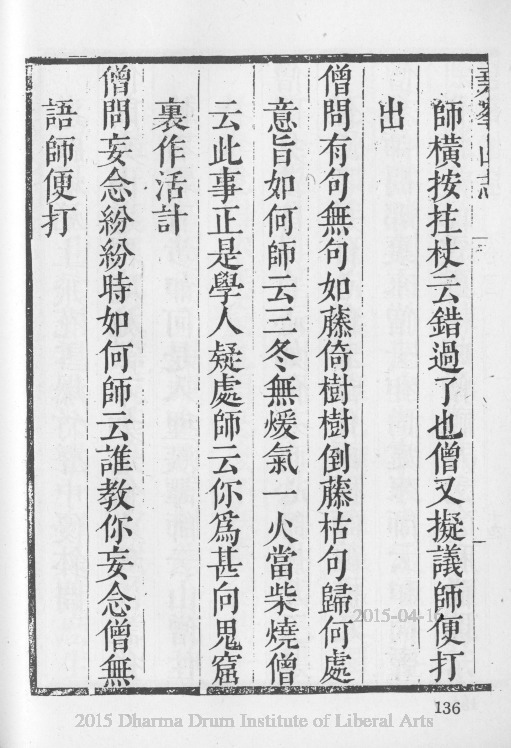 師橫按拄杖云錯過了也僧又擬議師便打
出
僧問有句無句如藤倚樹樹倒藤枯句歸何處
意旨如何師云三冬無煖氣一火當柴燒僧
云此事正是學人疑處師云你爲甚向鬼窟
裏作活計
僧問妄念紛紛時如何師云誰教你妄念僧無
語師便打
136
2015-04-1
2015 Dharma Drum Institute of Liberal Arts